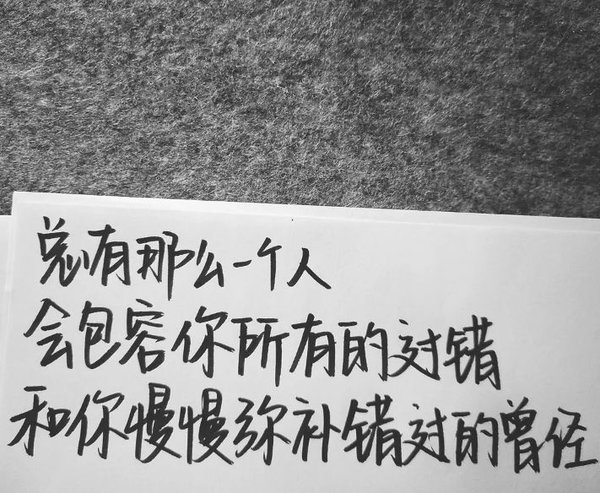 总有那么一个人
会包容你所有的对错
和你慢慢弥补错过的曾经